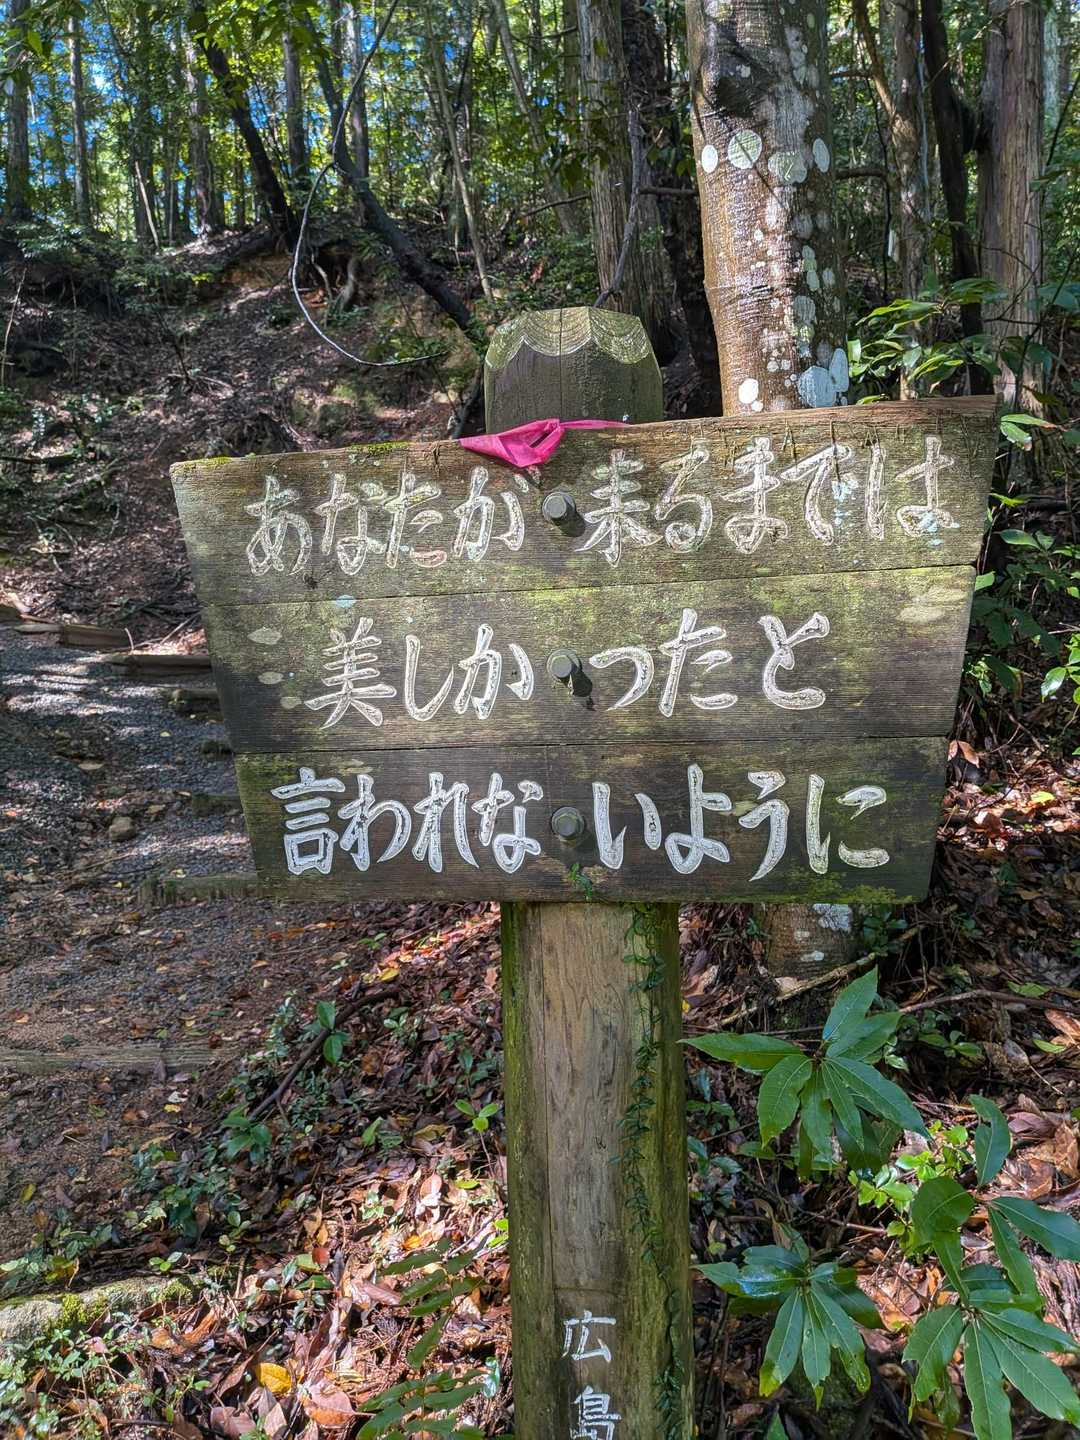 あなたが来るまでは
美しかったと
言われないように
広島